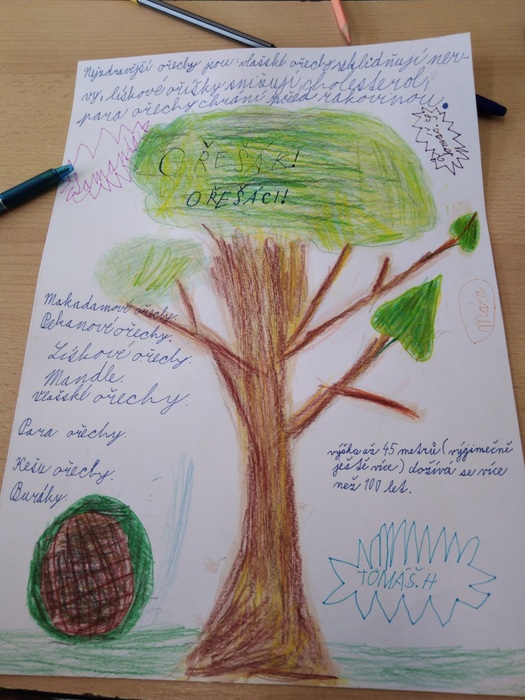 Nejzdravější ořechy jsou vlašské ořechy zklidňují ner-
vy, lískové oříšky snižují cholesterol,
para ořechy chrání před rakovinou.
OŘEŠÁK!
OŘEŠÁCI!
Makadamové ořechy.
Pekanové ořechy.
Lískové ořechy.
Mandle.
Vlašské ořechy.
Para ořechy.
Kešu ořechy.
Buráky.
Mára
výška až 45 metrů (výjimečně
ještě více) dožívá se více
než 100 let.
TOMÁŠ.H